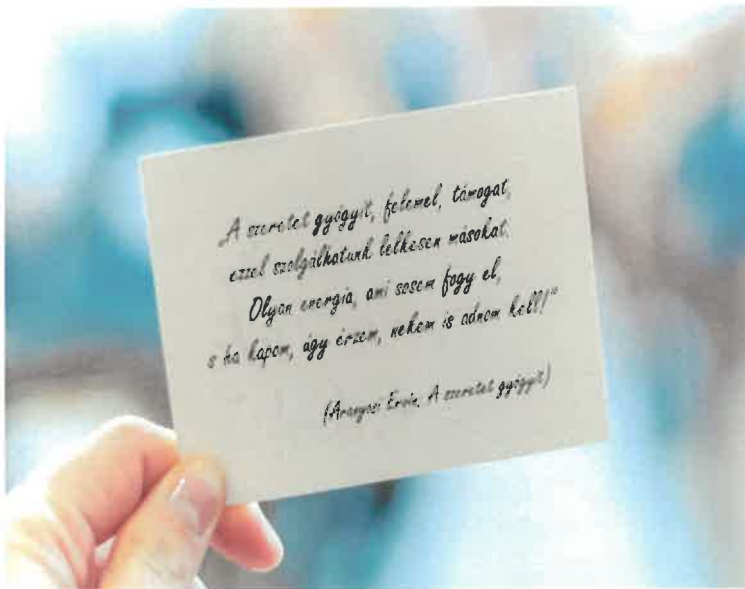 „A szeretet gyógyít, felemel, támogat,
ezzel szolgálhatunk lelkesen másokat.
Olyan energia, ami sosem fogy el,
s ha kapom, úgy érzem, nekem is adnom kell!”
(Aranyosi Ervin: A szeretet gyógyít)